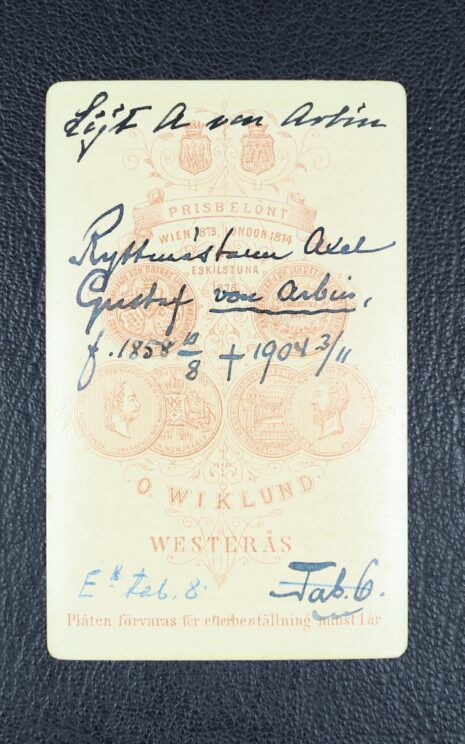 Löjt A von Arbin
PRISBELÖNT
WIEN 1873, LONDON 1874
ESKILSTUNA
Ryttmästaren Axel
Gustaf von Arbin,
f. 1858 19/8 + 1904 3/11
O. WIKLUND.
WESTERÅS
E* tab. 8.
Tab. 6.
Plåten förvaras för efterbeställning minst 1 år